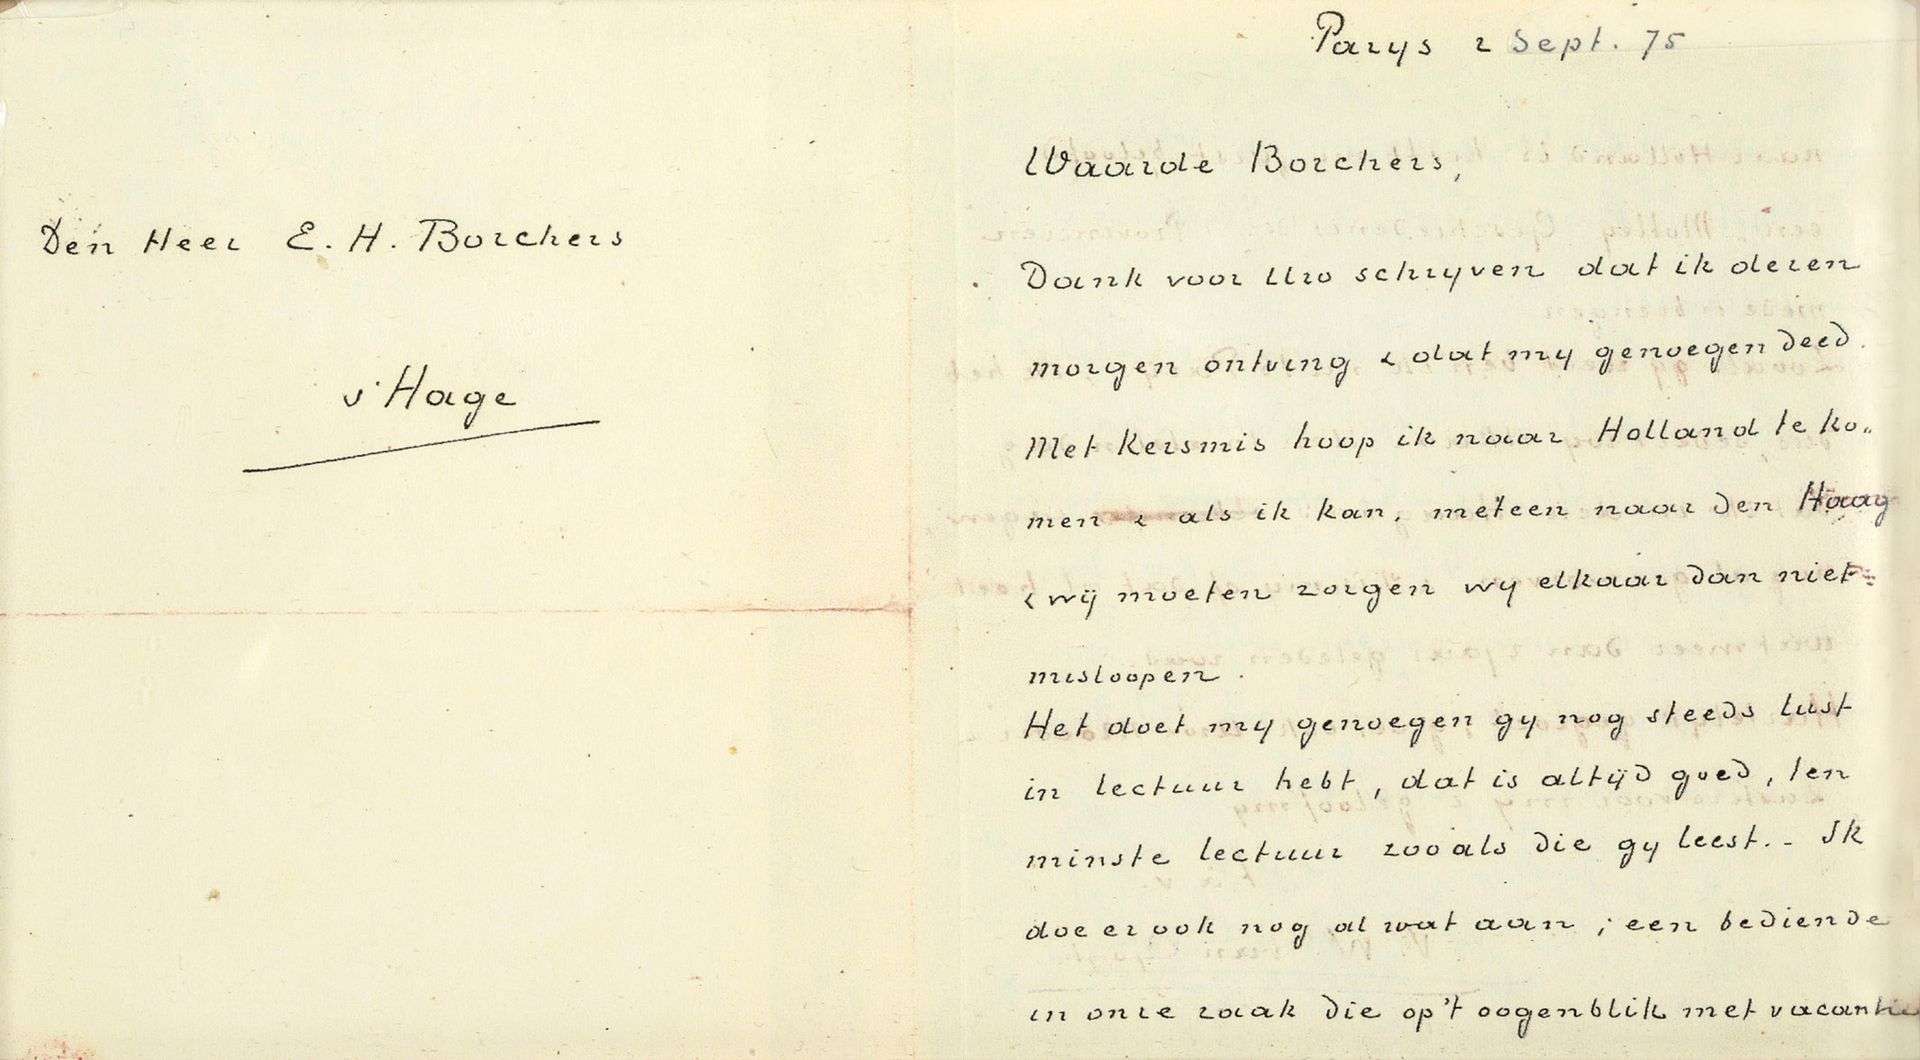 Den Heer E. H. Borchers
s' Hage
Parys 2 Sept. 75
Waarde Borchers,
Dank voor Uw schryven dat ik dezen
morgen ontving & dat my genoegen deed.
Met Kersmis hoop ik naar Holland te ko„
men & als ik kan, meteen naar den Haag
& wij moeten zorgen wy elkaar dan niet
misloopen.
Het doet my genoegen gy nog steeds lust
in lectuur hebt, dat is altijd goed, ten
minste lectuur zooals die gy leest. - Ik
doe er ook nog al wat aan; een bediende
in onze zaak die op 't oogenblik met vacantie